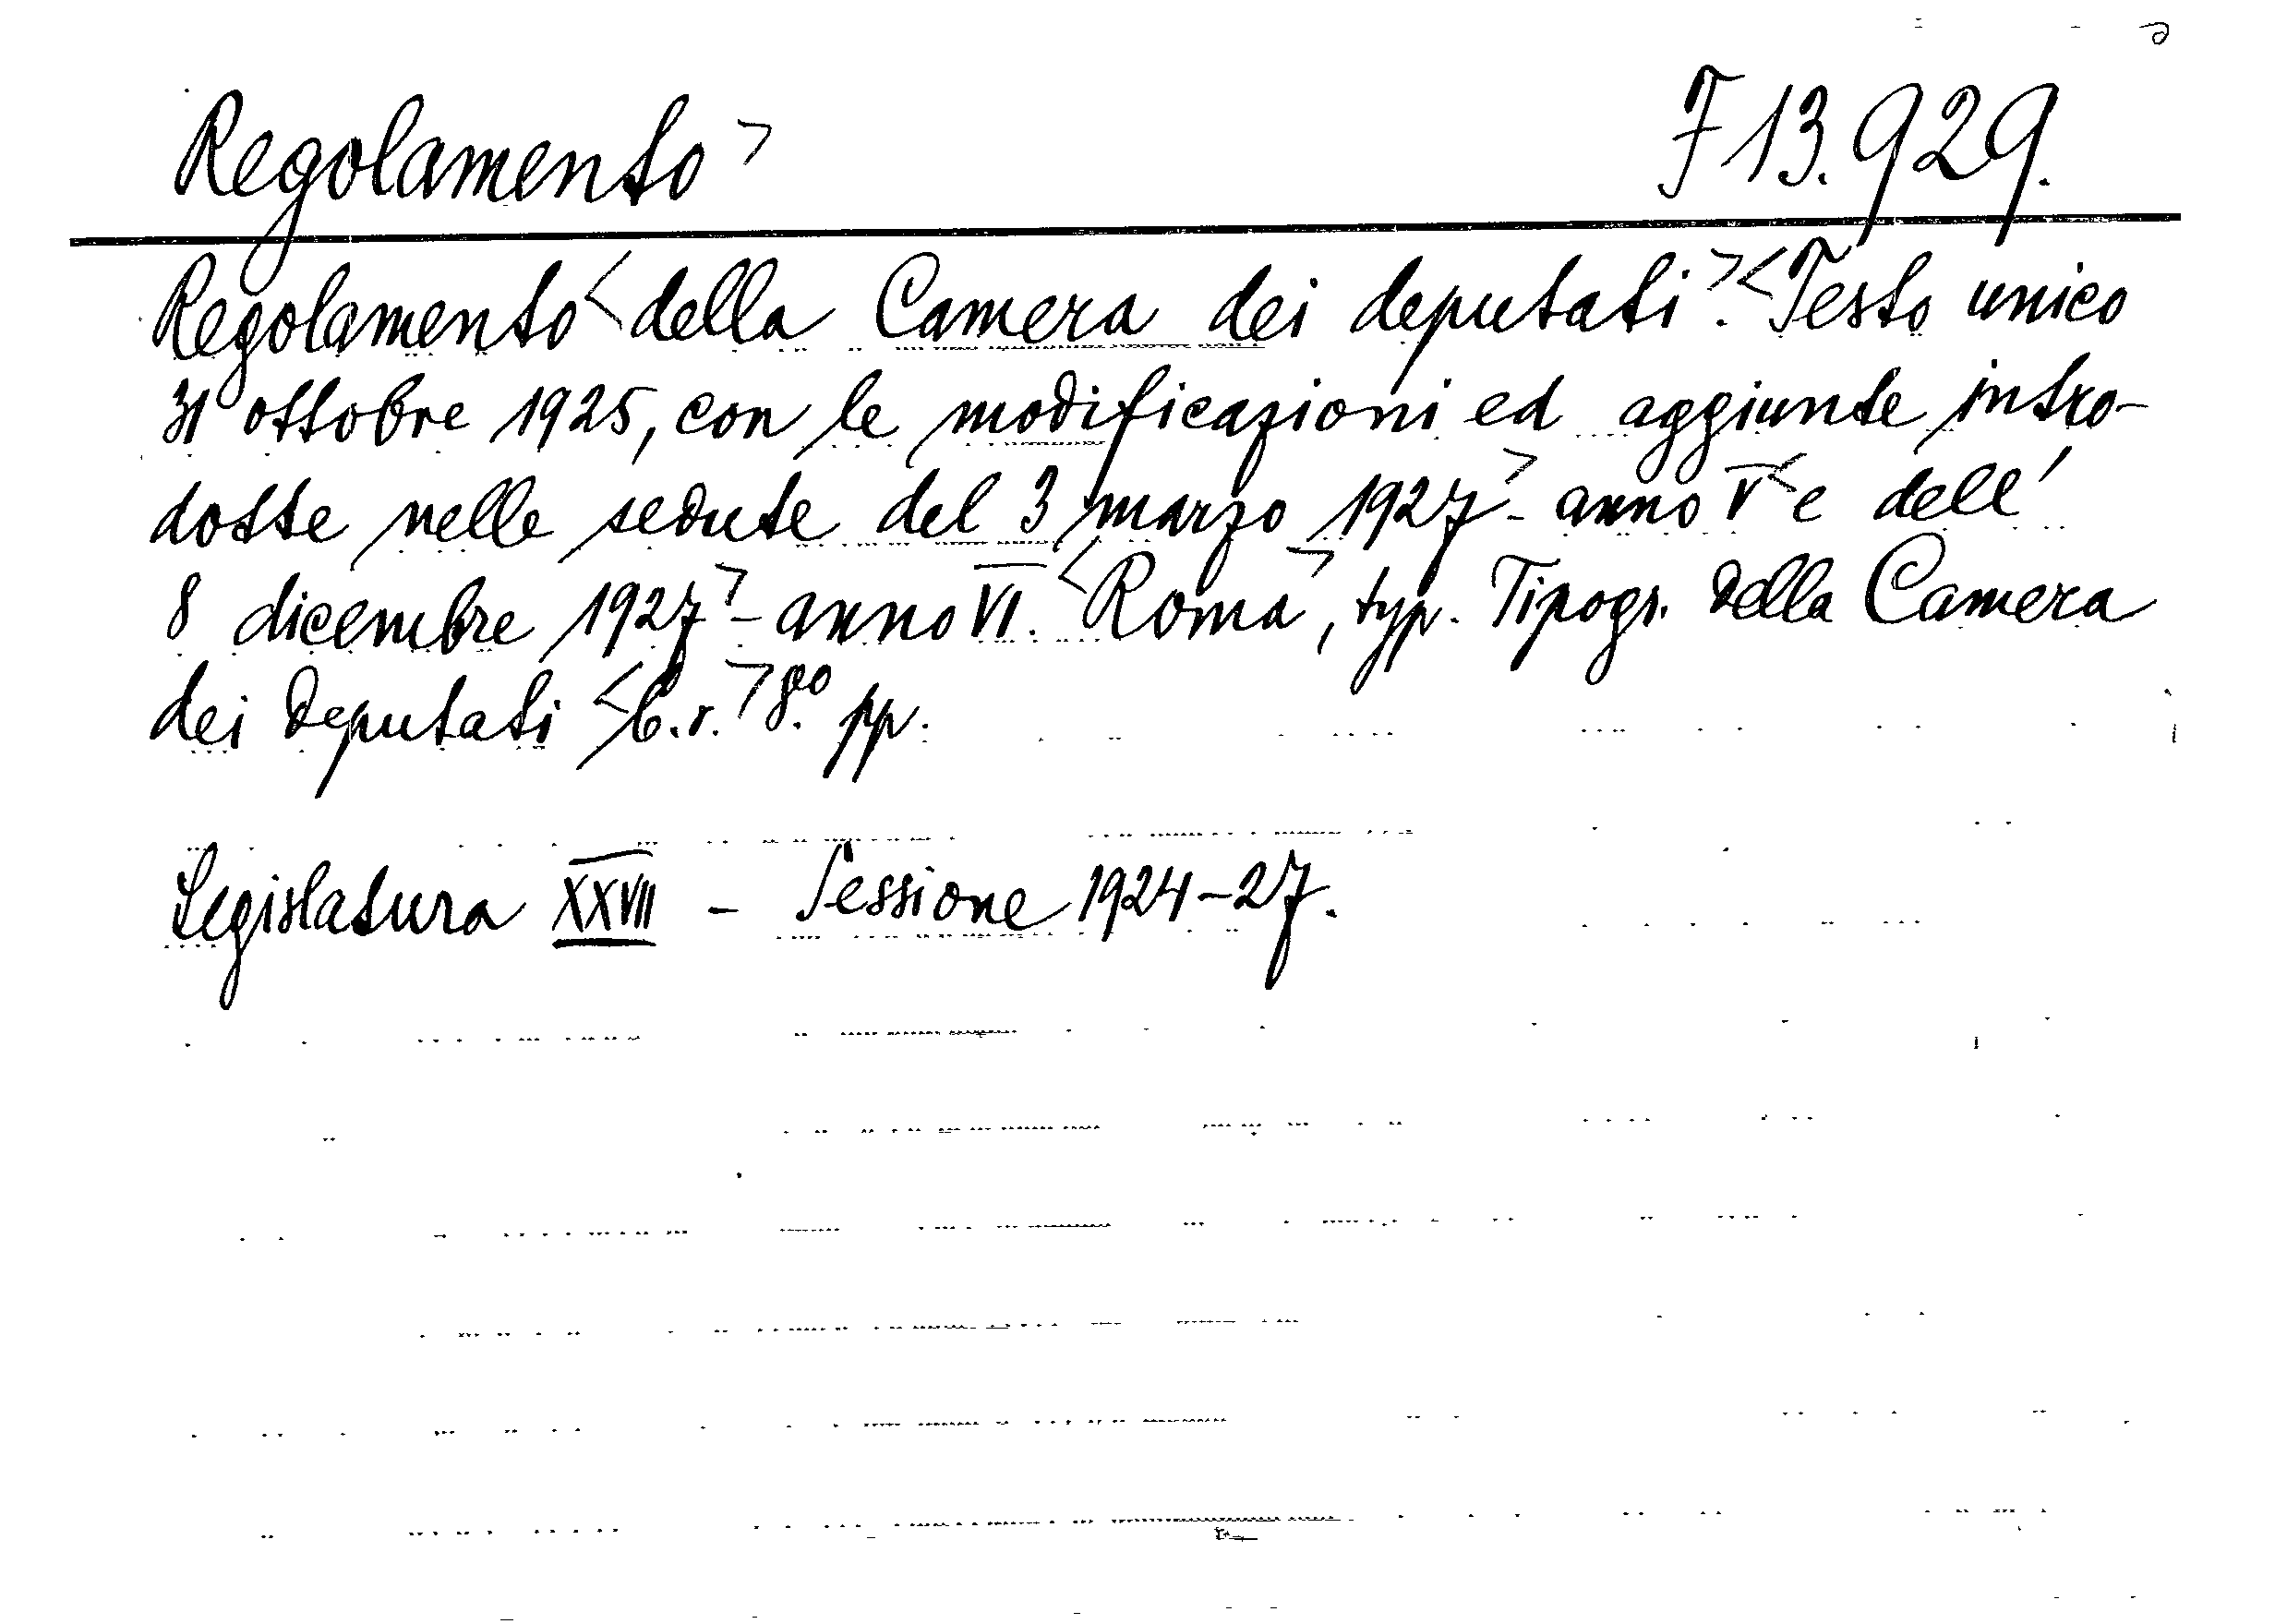 Regolamento> F 13.929.
Regolamento<della Camera dei deputati.><Testo unico
31 ottobre 1925, con le modificazioni ed aggiunte intro-
dotte nelle sedute del 3 marzo 1927>- anno V<e dell'
8 dicembre 1927>- anno VI.<Roma>, typ. Tipogr. della Camera
dei deputati <C.r.> 8o. pp.
Legislatura XXVII - Sessione 1924-27.